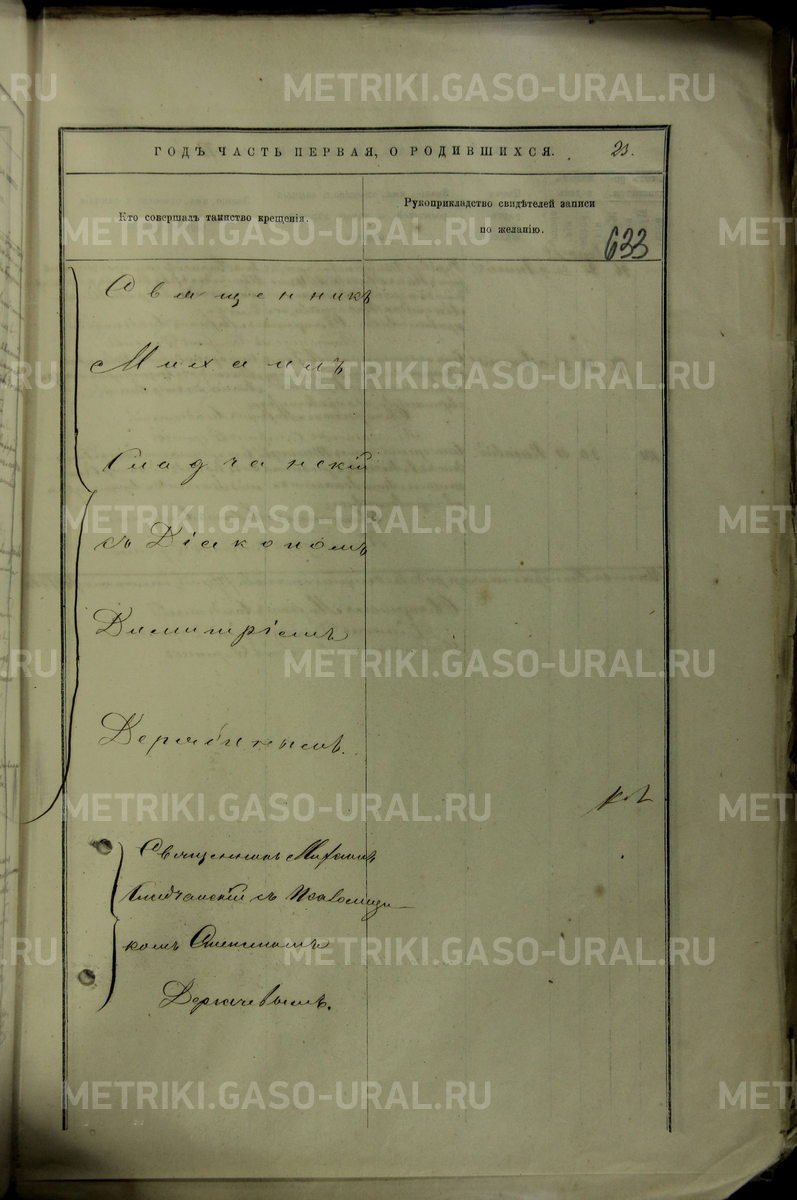 METRIKI.GASO-URAL.RU
ГОДЪ ЧАСТЬ ПЕРВАЯ, О РОДИВШИХСЯ. 23.
Кто совершалъ таинство крещенія.
Рукоприкладство свидѣтелей записи
по желанію.
633
Священникъ
Михаилъ
Сладчанскій
съ Діакономъ
Димитріемъ
Дерябинымъ.
Священникъ Михаилъ
Сладчанскій съ Псаломщи-
комъ
Дергачевымъ.